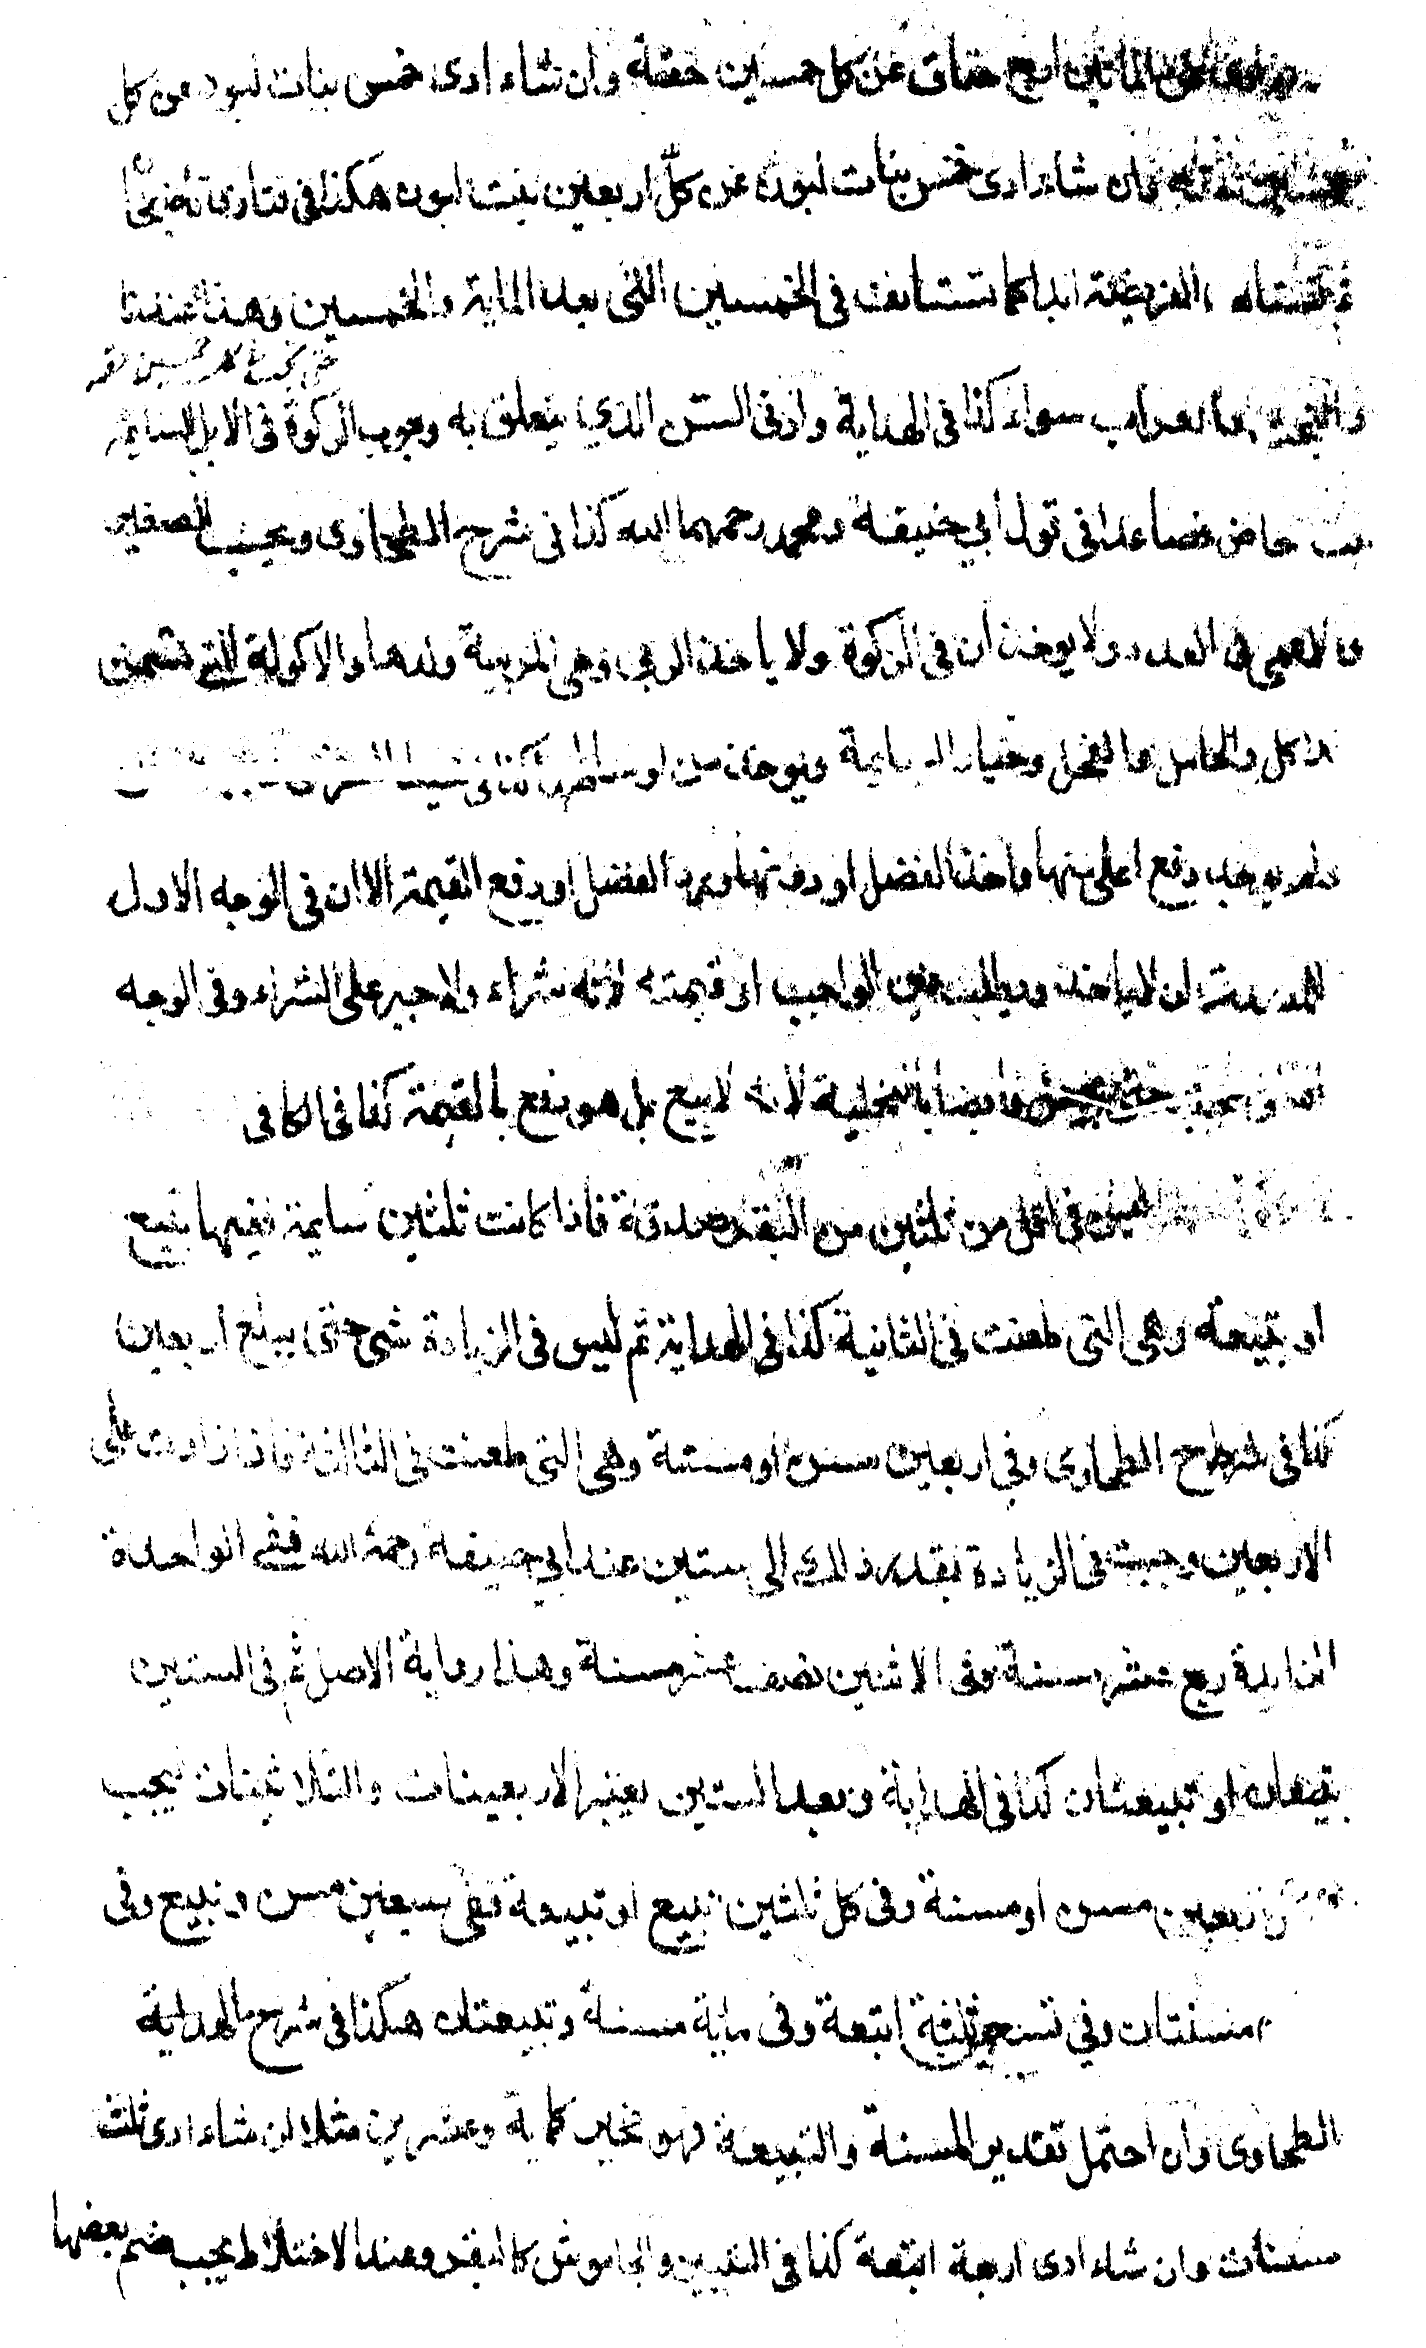 المائتين اربع حقاق عن كل خمسين حقة وان شاء ادى خمس بنات لبون عن كل
وان شاء ادى خمس بنات لبون عن كل اربعين بنت لبون هكذا في فتاوى قاضيخان
الفريضة ابدا كما تستأنف في الخمسين التي بعد الماية والخمسين وهذا عندنا
والعراب سواء كذا في الهداية وادنى السن الذي يتعلق به وجوب الزكوة في الابل السايمة
مخاض فصاعدا في قول ابي حنيفة ومحمد رحمهما الله كذا في شرح الطحاوي وتحسب الصغير
والاعمى في العدد ولا يوخذان في الزكوة ولا ياخذ الربى وهي المربية ولدها والاكولة التي تسمن
للاكل والحامل والفحل وخيار السايمة ويوخذ من اوساطها كذا في
دفع اعلى منها واخذ الفضل او دونها ورد الفضل او دفع القيمة الا ان في الوجه الاول
للمصدق ان لا ياخذ ويطلب عين الواجب او قيمته لانه شراء ولا جبر على الشراء وفي الوجه
قابضا بالتخلية لانه لا بيع بل هو دفع بالقيمة كذا في الكافي
ليس في اقل من ثلثين من البقر صدقة فاذا كانت ثلثين سايمة ففيها تبيع
او تبيعة وهي التي طعنت في الثانية كذا في الهداية ثم ليس في الزيادة شيء حتى يبلغ اربعين
كذا في شرح الطحاوي وفي اربعين مسن او مسنة وهي التي طعنت في الثالثة فاذا زادت على
الاربعين وجبت في الزيادة بقدر ذلك الى ستين عند ابي حنيفة رحمه الله ففي الواحدة
الزايدة ربع عشر مسنة وفي الاثنين نصف عشر مسنة وهذا رواية الاصل ثم في الستين
تبيعان او تبيعتان كذا في الهداية وبعد الستين يعتبر الاربعينات والثلاثينات فيجب
اربعين مسن او مسنة وفي كل ثلثين تبيع او تبيعة ففي سبعين مسن وتبيع وفي
مسنتان وفي تسعين ثلثة اتبعة وفي ماية مسنة وتبيعتان هكذا في شرح الهداية
الطحاوي وان احتمل تقدير المسنة والتبيعة فهو مخير كماية وعشرين مثلا ان شاء ادى ثلث
مسنات وان شاء ادى اربعة اتبعة كذا في التبيين والجاموش كالبقر وعند الاختلاط يجب ضم بعضها